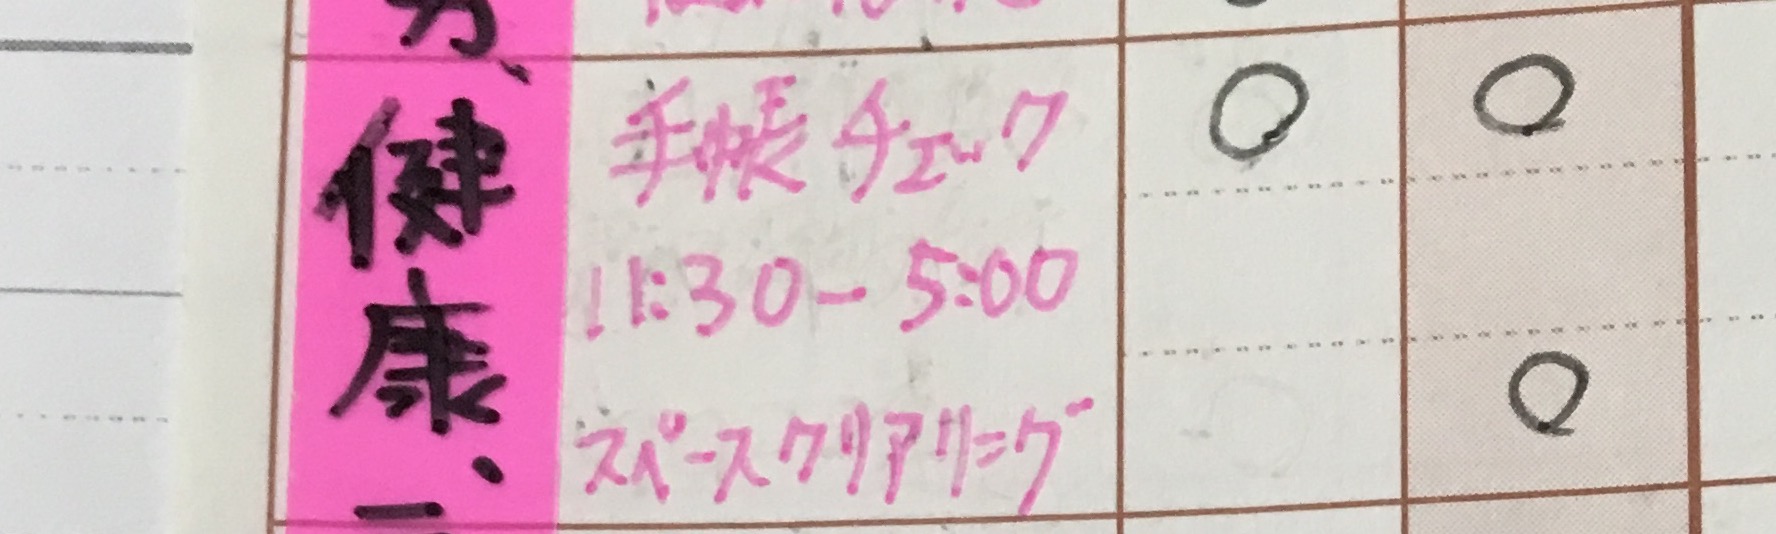 健康、
手帳チェック
11:30- 5:00
スペースクリアリング